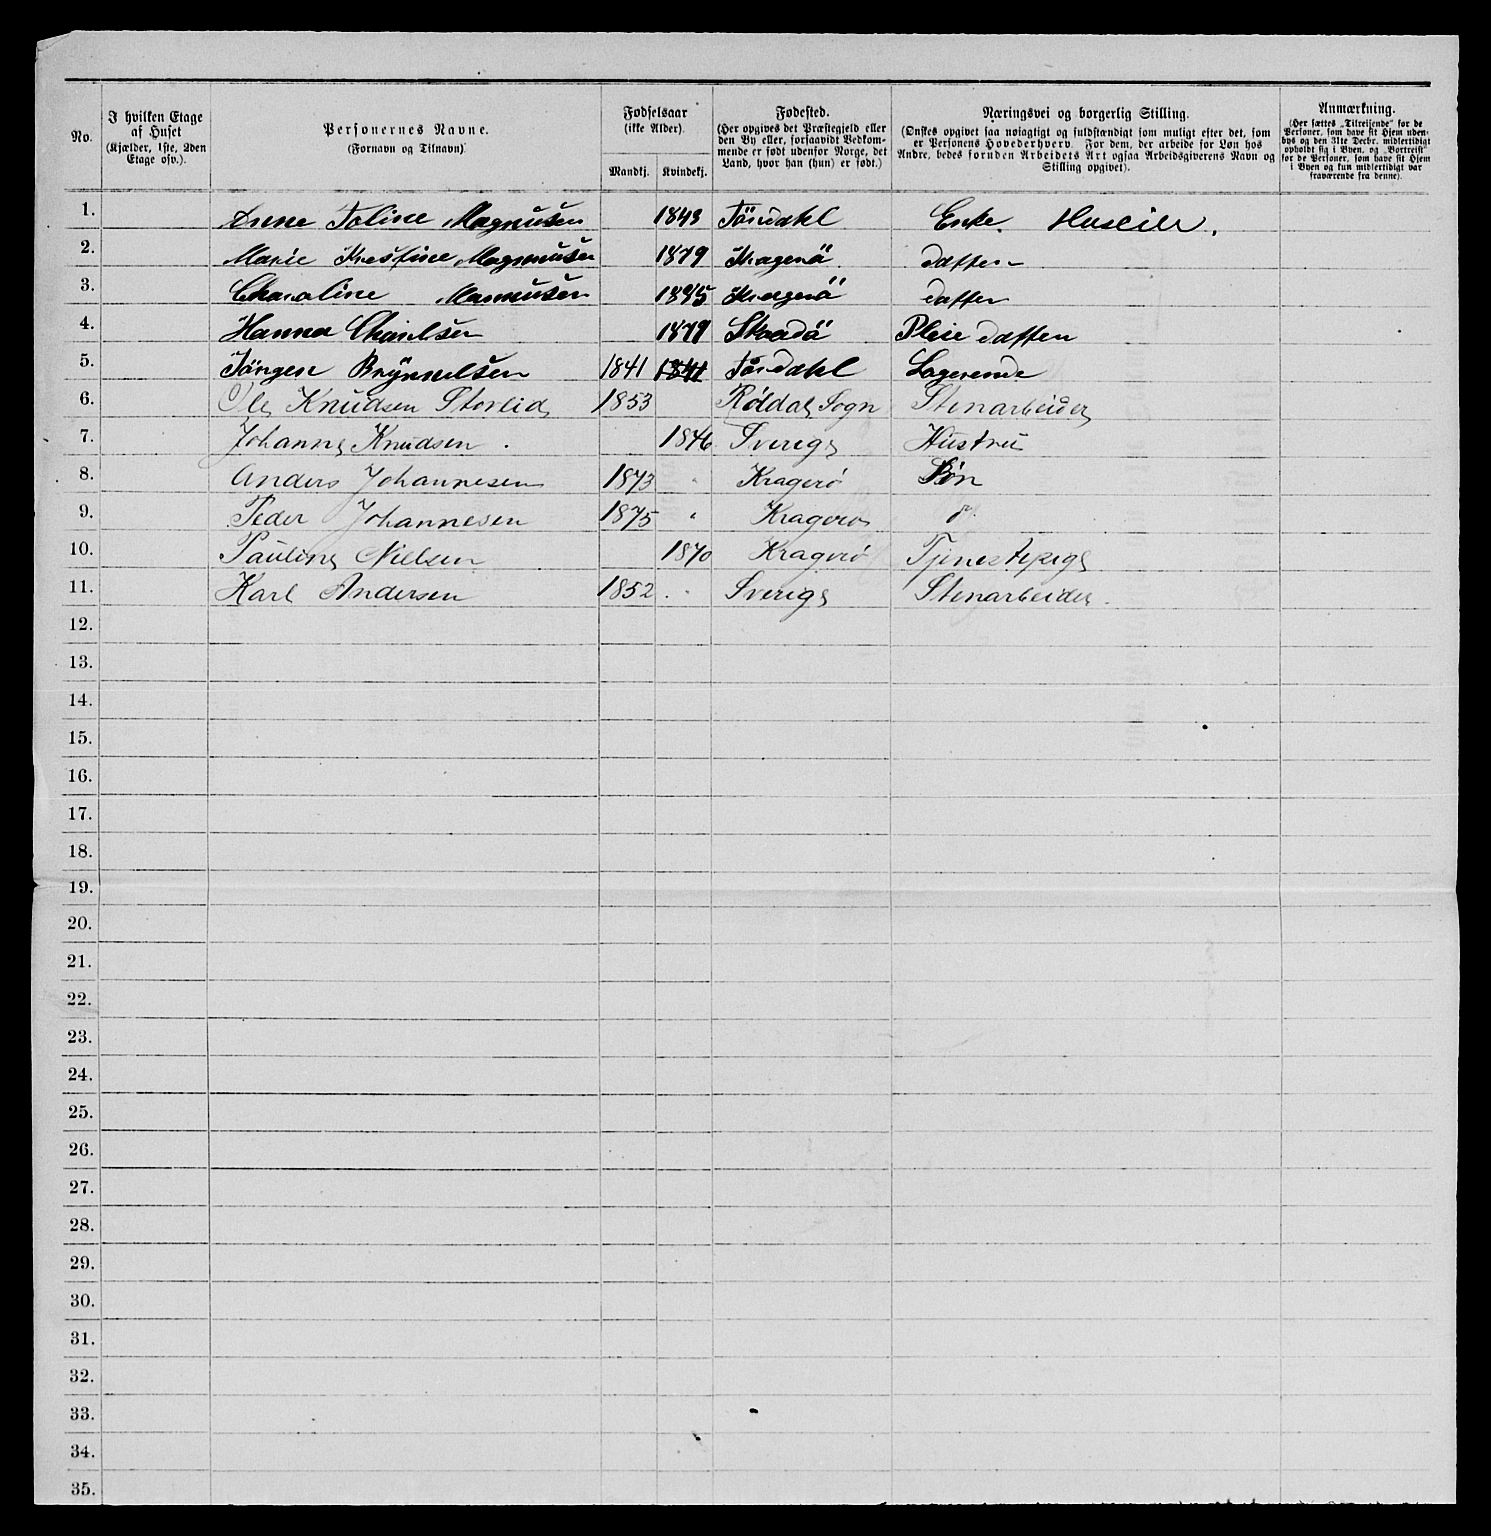 No.
I hvilken Etage af Huset (Kjælder, 1ste, 2den Etage osv.).
Personernes Navne. (Fornavn og Tilnavn)
Fødselsaar (ikke Alder).
Mandkj. Kvindekj.
Fødested. (Her opgives det Præstegjeld eller den By eller, forsaavidt Vedkommende er født udenfor Norge, det Land, hvor han (hun) er født.)
Næringsvei og borgerlig Stilling. (Ønskes opgivet saa nøiagtigt og fuldstændigt som muligt efter det, som er Personens Hovederhverv. For dem, der arbeide for Løn hos Andre, bedes foruden Arbeidets Art ogsaa Arbeidsgiverens Navn og Stilling opgivet).
Anmærkning. (Her sættes „Tilreisende“ for de Personer, som have sit Hjem udenbys og den 31te Decbr. midlertidigt opholdt sig i Byen, og „Bortreist“ for de Personer, som have sit Hjem i Byen og kun midlertidigt var fraværende fra denne).
1. Anne Toline Magnusen 1843 Törsdahl Enke. Huseier.
2. Marie Kristine Magnusen 1879 Kragerö datter
3. Charoline Magnusen 1875 Kragerö datter
4. Hanna Charelsen 1879 Skaadö Pleie datter
5. Jörgen Brynnelsen 1841 1841 Törsdahl Logerende
6. Ole Knudsen Storlid 1853 Røldal Sogn Stenarbeider
7. Johanne Knudsen. 1846 Sverige Hustru
8. Anders Johannesen 1873 " Kragerö Søn
9. Peder Johannesen 1875 " Kragerø
10. Pauline Nielsen 1870 Kragerø Tjenestepige
11. Karl Andersen 1852 " Sverige Stenarbeider.
12.
13.
14.
15.
16.
17.
18.
19.
20.
21.
22.
23.
24.
25.
26.
27.
28.
29.
30.
31.
32.
33.
34.
35.